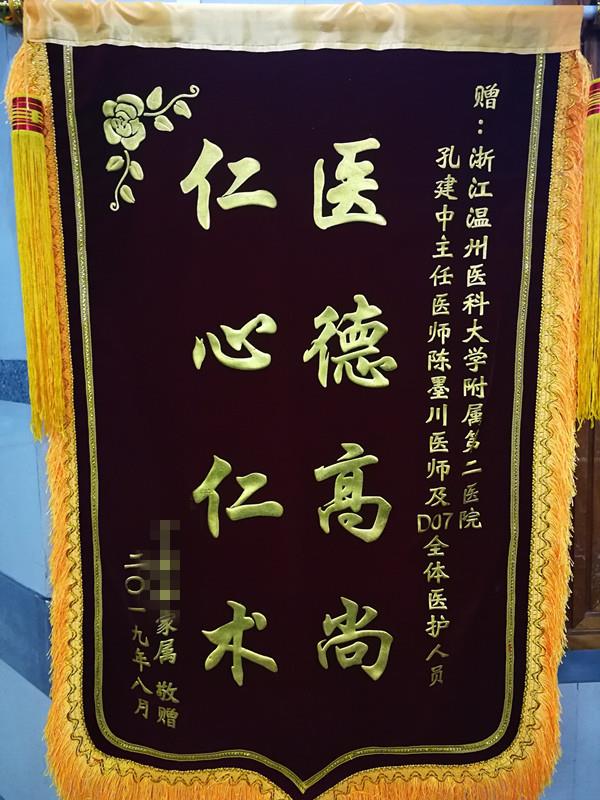 赠：浙江温州医科大学附属第二医院
孔建中主任医师陈墨川医师及D07全体医护人员
医德高尚
仁心仁术
家属 敬赠
二〇一九年八月